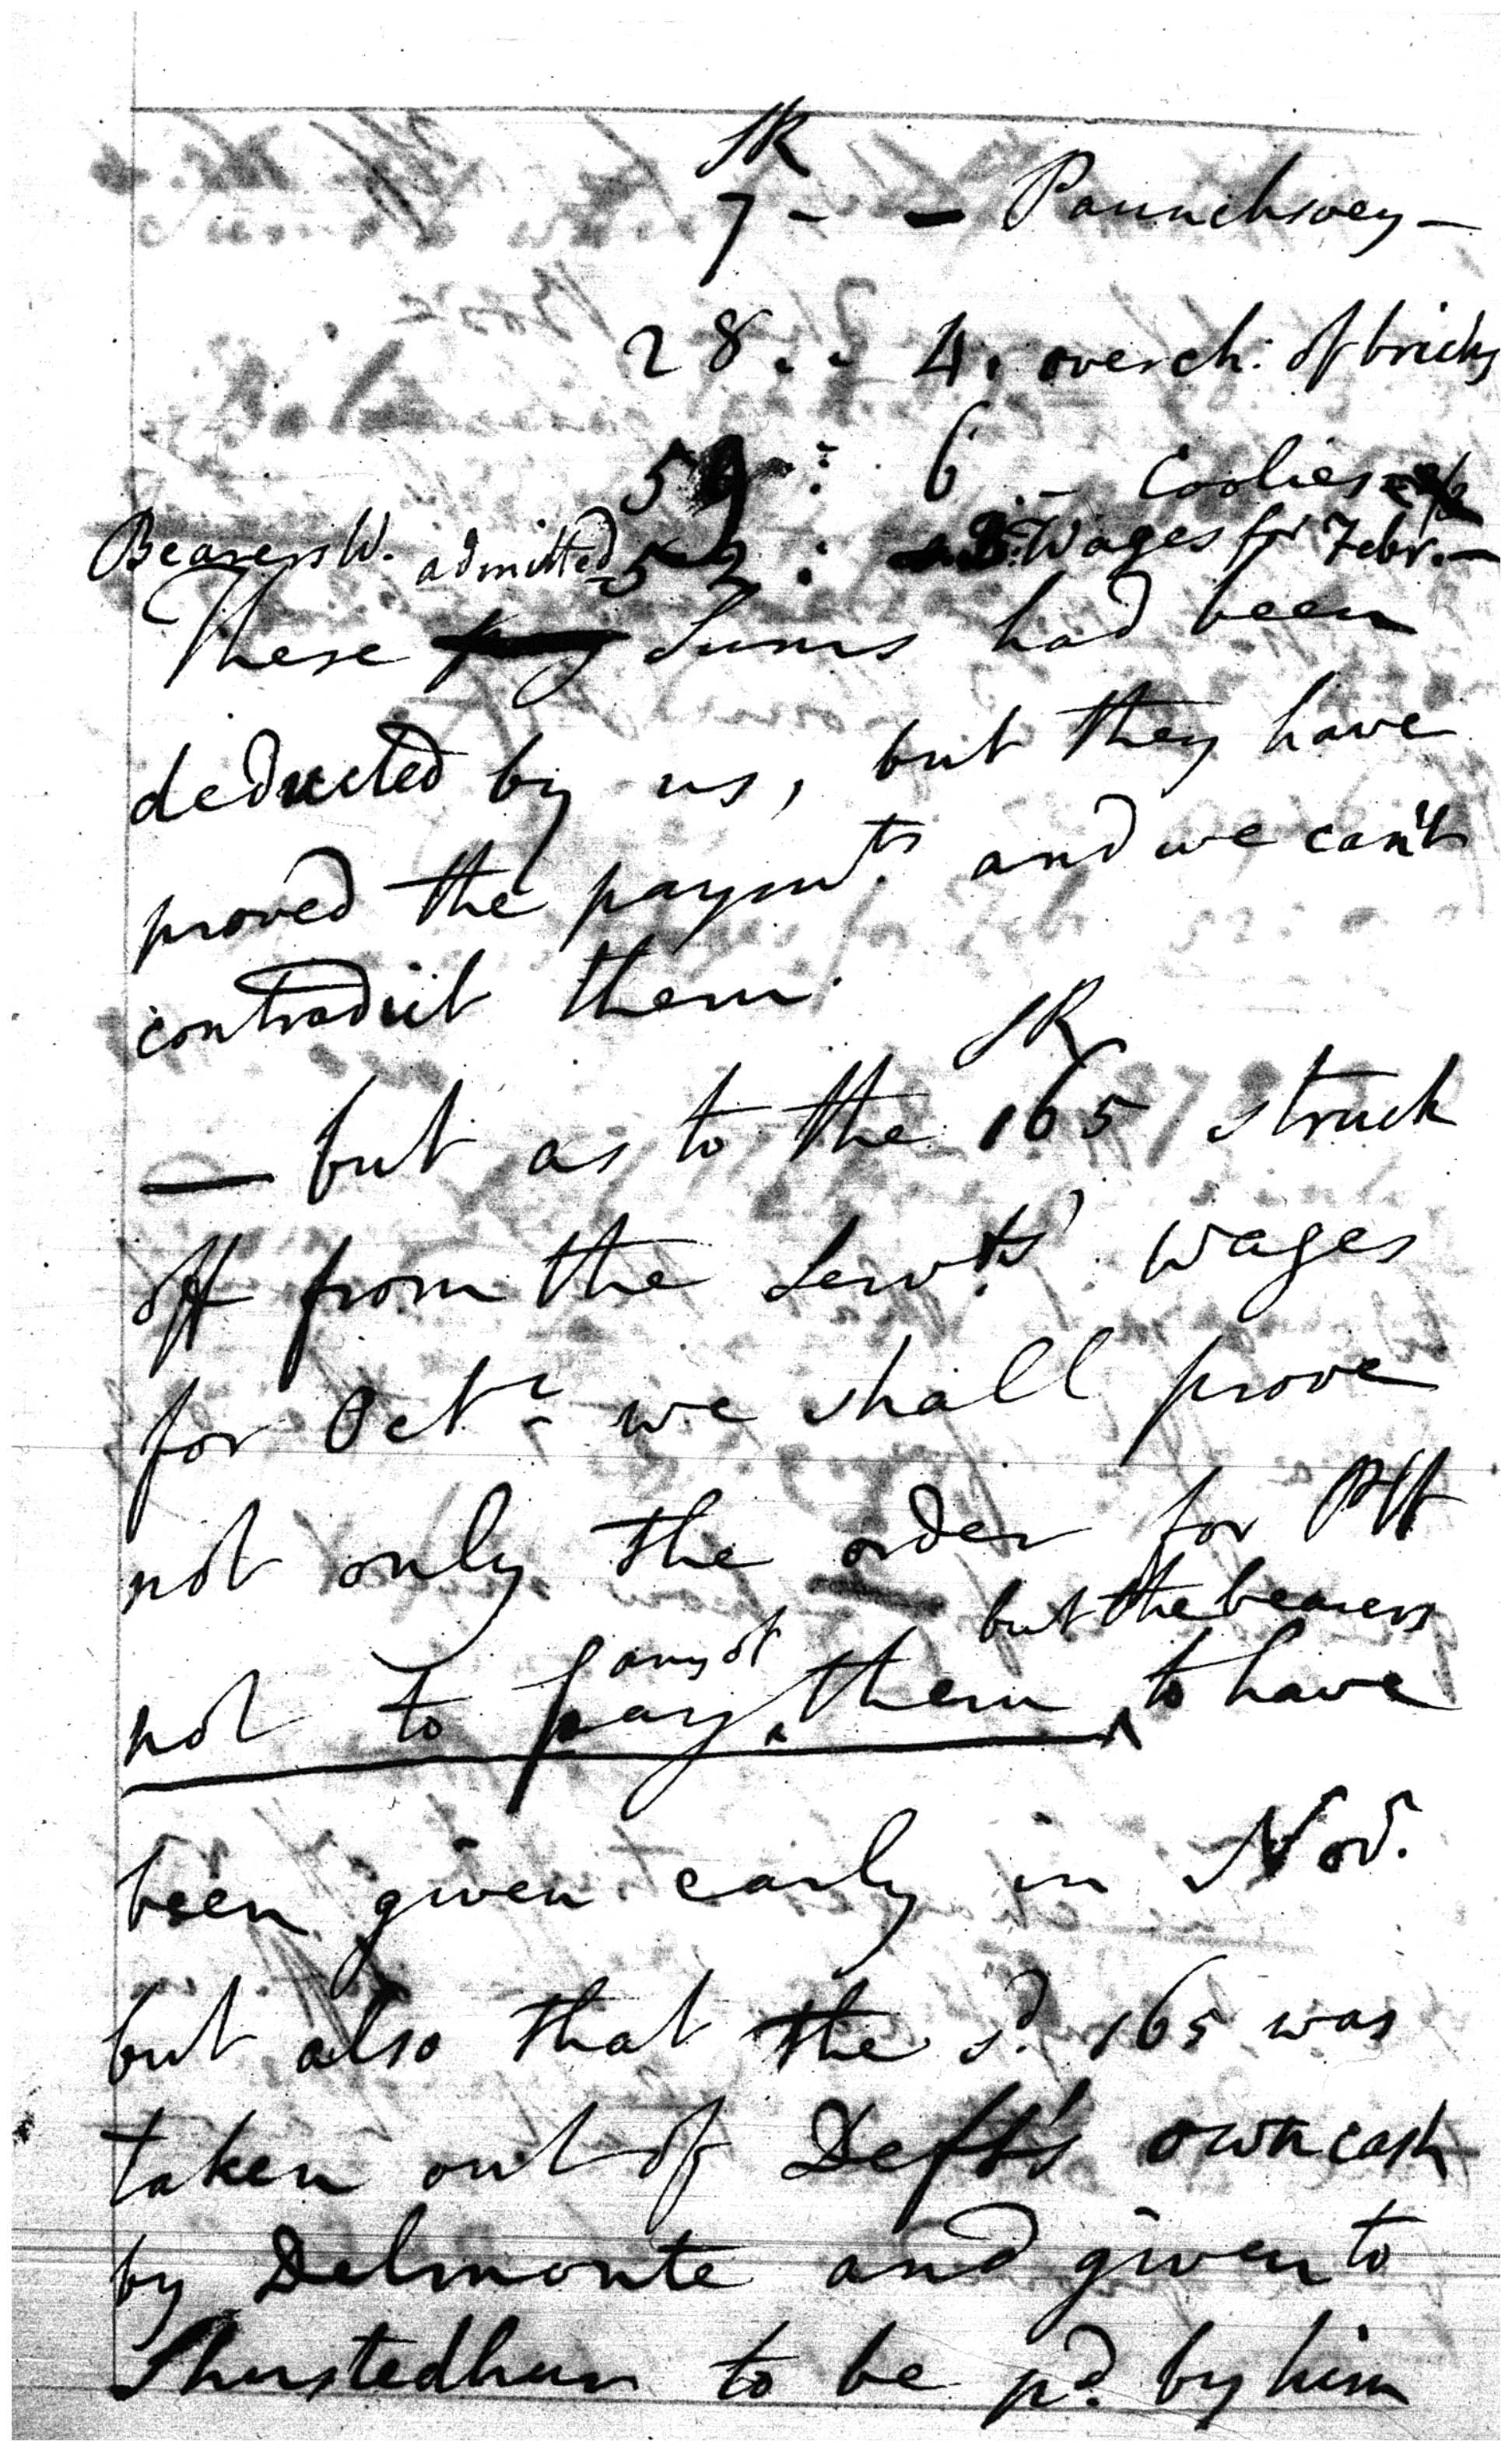 SR
7 - - Paunchwey -
28 . . 4 . overch: of bricks
59 : 6 . - Coolies
Bearers W. admitted 52 : Wages for Febr. -
These Sums had been
deducted by us, but they have
proved the paymts. and we can't
contradict them.
SR
— but as to the 165 struck
off from the Servts' wages
for Octr. we shall prove
not only the order for Plff
any of but the bearers
not to pay ^ them ^ to have
been given early in Nov.
but also that the sd. 165 was
taken out of Deft's own cash
by Delmonte and given to
to be pd. by him